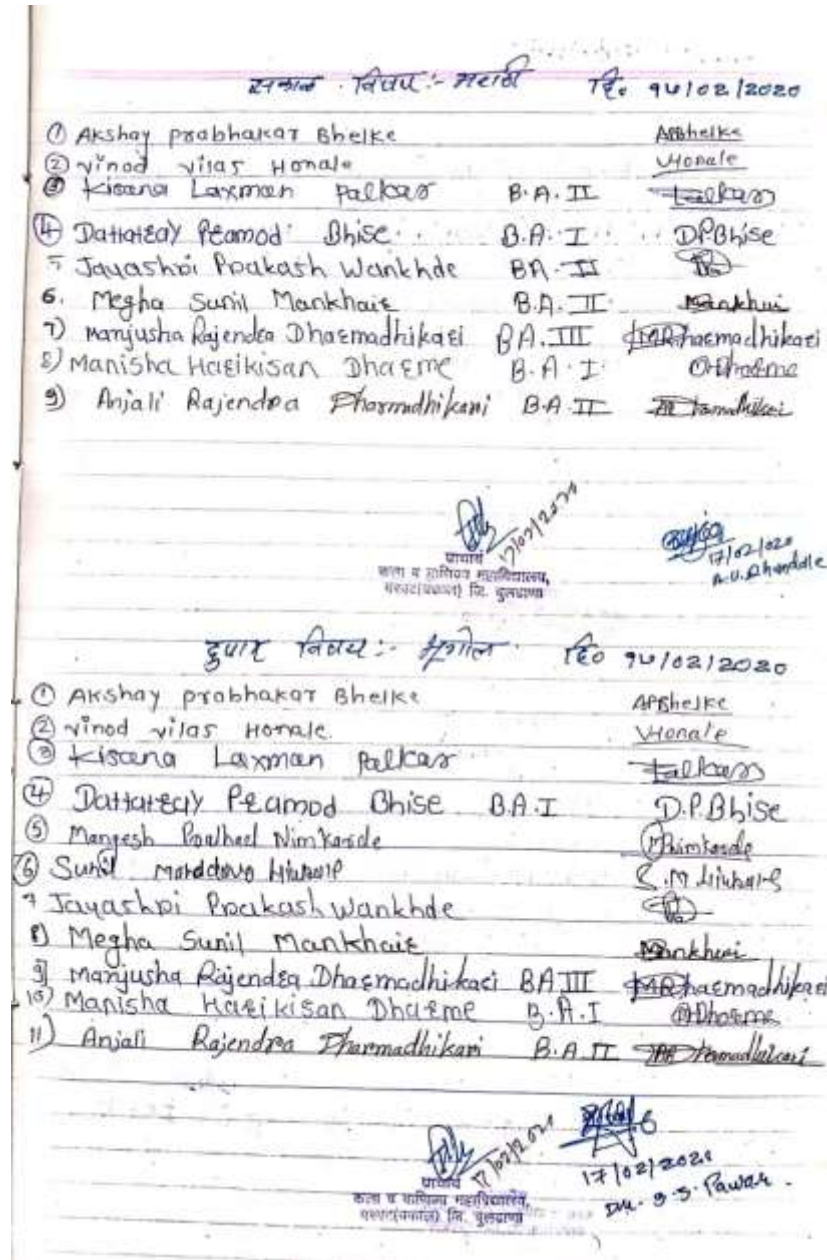 सकाळ विषय :- मराठी दि. १५/०२/2020
① Akshay prabhakar Bhelke APBhelke
② vinod vilas Honale VHonale
③ Kisana Laxman Palkar B.A. II
④ Dattatray Pramod Bhise B.A. I D.P.Bhise
5 Jayashri Prakash Wankhde BA. II
6. Megha Sunil Mankhair B.A. II Mankhair
7) Manjusha Rajendra Dharmadhikari BA. III MRDharmadhikari
8) Manisha Harikisan Dharme B.A. I MDharme
9) Anjali Rajendra Dharmadhikari B.A. II
17/02/2020
17/02/020
प्राचार्य A.U. Dhandale
कला व वाणिज्य महाविद्यालय,
जि. बुलढाणा
दुपार विषय :- भूगोल दि० १५/०२/2020
① Akshay prabhakar Bhelke APBhelke
② vinod vilas Honale. VHonale
③ Kisana Laxman Palkar
④ Dattatray Pramod Bhise B.A.I D.P.Bhise
⑤ Mangesh Nimkarde MNimkarde
⑥ Sunil
7 Jayashri Prakash Wankhde
8) Megha Sunil Mankhair Mankhair
9) Manjusha Rajendra Dharmadhikari BA III MRDharmadhikari
10) Manisha Harikisan Dharme B.A.I MDharme
11) Anjali Rajendra Dharmadhikari B.A.II
17/02/2020
17/02/2020
प्राचार्य Dr. S. S. Pawar.
कला व वाणिज्य महाविद्यालय,
जि. बुलढाणा